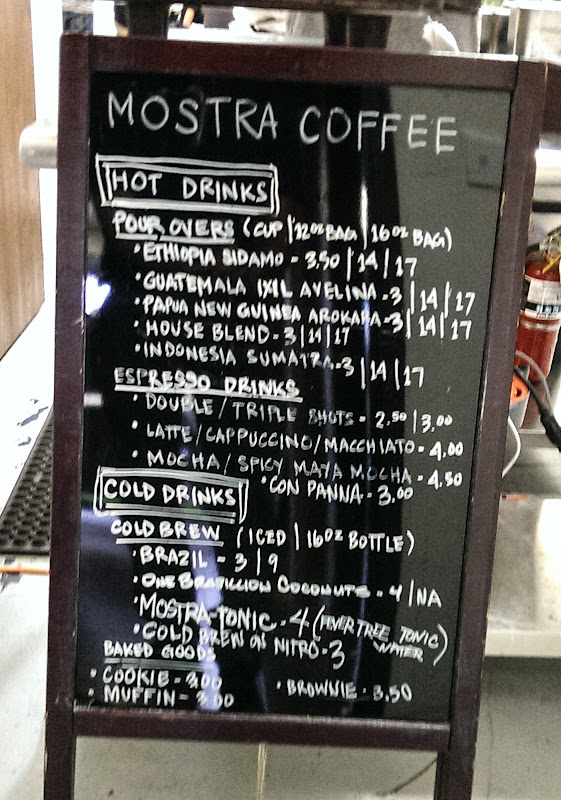 MOSTRA COFFEE
HOT DRINKS
POUR OVERS (CUP | 12oz BAG | 16oz BAG)
• ETHIOPIA SIDAMO - 3.50 | 14 | 17
• GUATEMALA IXIL AVELINA - 3 | 14 | 17
• PAPUA NEW GUINEA AROKARA - 3 | 14 | 17
• HOUSE BLEND - 3 | 14 | 17
• INDONESIA SUMATRA - 3 | 14 | 17
ESPRESSO DRINKS
• DOUBLE / TRIPLE SHOTS - 2.50 | 3.00
• LATTE / CAPPUCCINO / MACCHIATO - 4.00
• MOCHA / SPICY MAYA MOCHA - 4.50
• CON PANNA - 3.00
COLD DRINKS
COLD BREW (ICED | 16oz BOTTLE)
• BRAZIL - 3 | 9
• ONE BRAZILLION COCONUTS - 4 | NA
• MOSTRA-TONIC - 4 (FEVER TREE TONIC WATER)
• COLD BREW ON NITRO - 3
BAKED GOODS
• COOKIE - 3.00
• MUFFIN - 3.00 • BROWNIE - 3.50